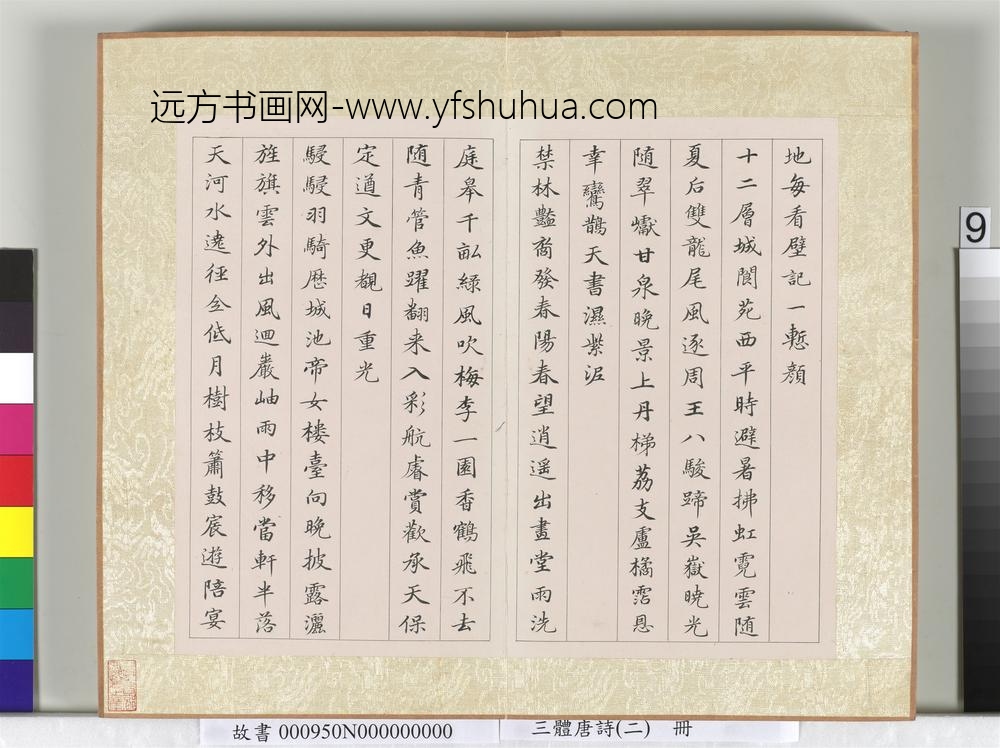 远方书画网-www.yfshuhua.com
地每看壁記一慙顏
十二層城閬苑西平時避暑拂虹霓雲随
夏后雙龍尾風逐周王八駿蹄吳嶽暁光
随翠巘甘泉晚景上丹梯荔支盧橘霑恩
幸鸞鵲天書濕紫泥
禁林豔裔發春陽春望逍遥出畫堂雨洗
庭皋千畝緑風吹梅李一園香鶴飛不去
随青管魚躍翻来入彩航睿賞歡承天保
定遒文更覩日重光
駸駸羽騎歴城池帝女楼臺向晚披露灑
旌旗雲外出風迴巖岫雨中移當軒半落
天河水遶徑全低月樹枝簫鼓宸遊陪宴
9
故書 000950N000000000
三體唐詩(二) 冊